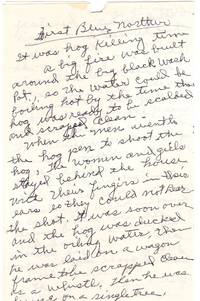 First Blue Norther
It was hog killing time
a big fire was built
around the big black wash
pot, so the water could be
boiling hot by the time the
hog was ready to be scalded
and scraped clean.
When the men went to
the hog pen to shoot the
hog, the women and girls
stayed behind the house
with their fingers in their
ears so they could not hear
the shot. It was soon over
and the hog was ducked
in the boiling water, then
he was laid on a wagon
frame to be scrapped clean
as a whistle, then he was
hung on a singletree,